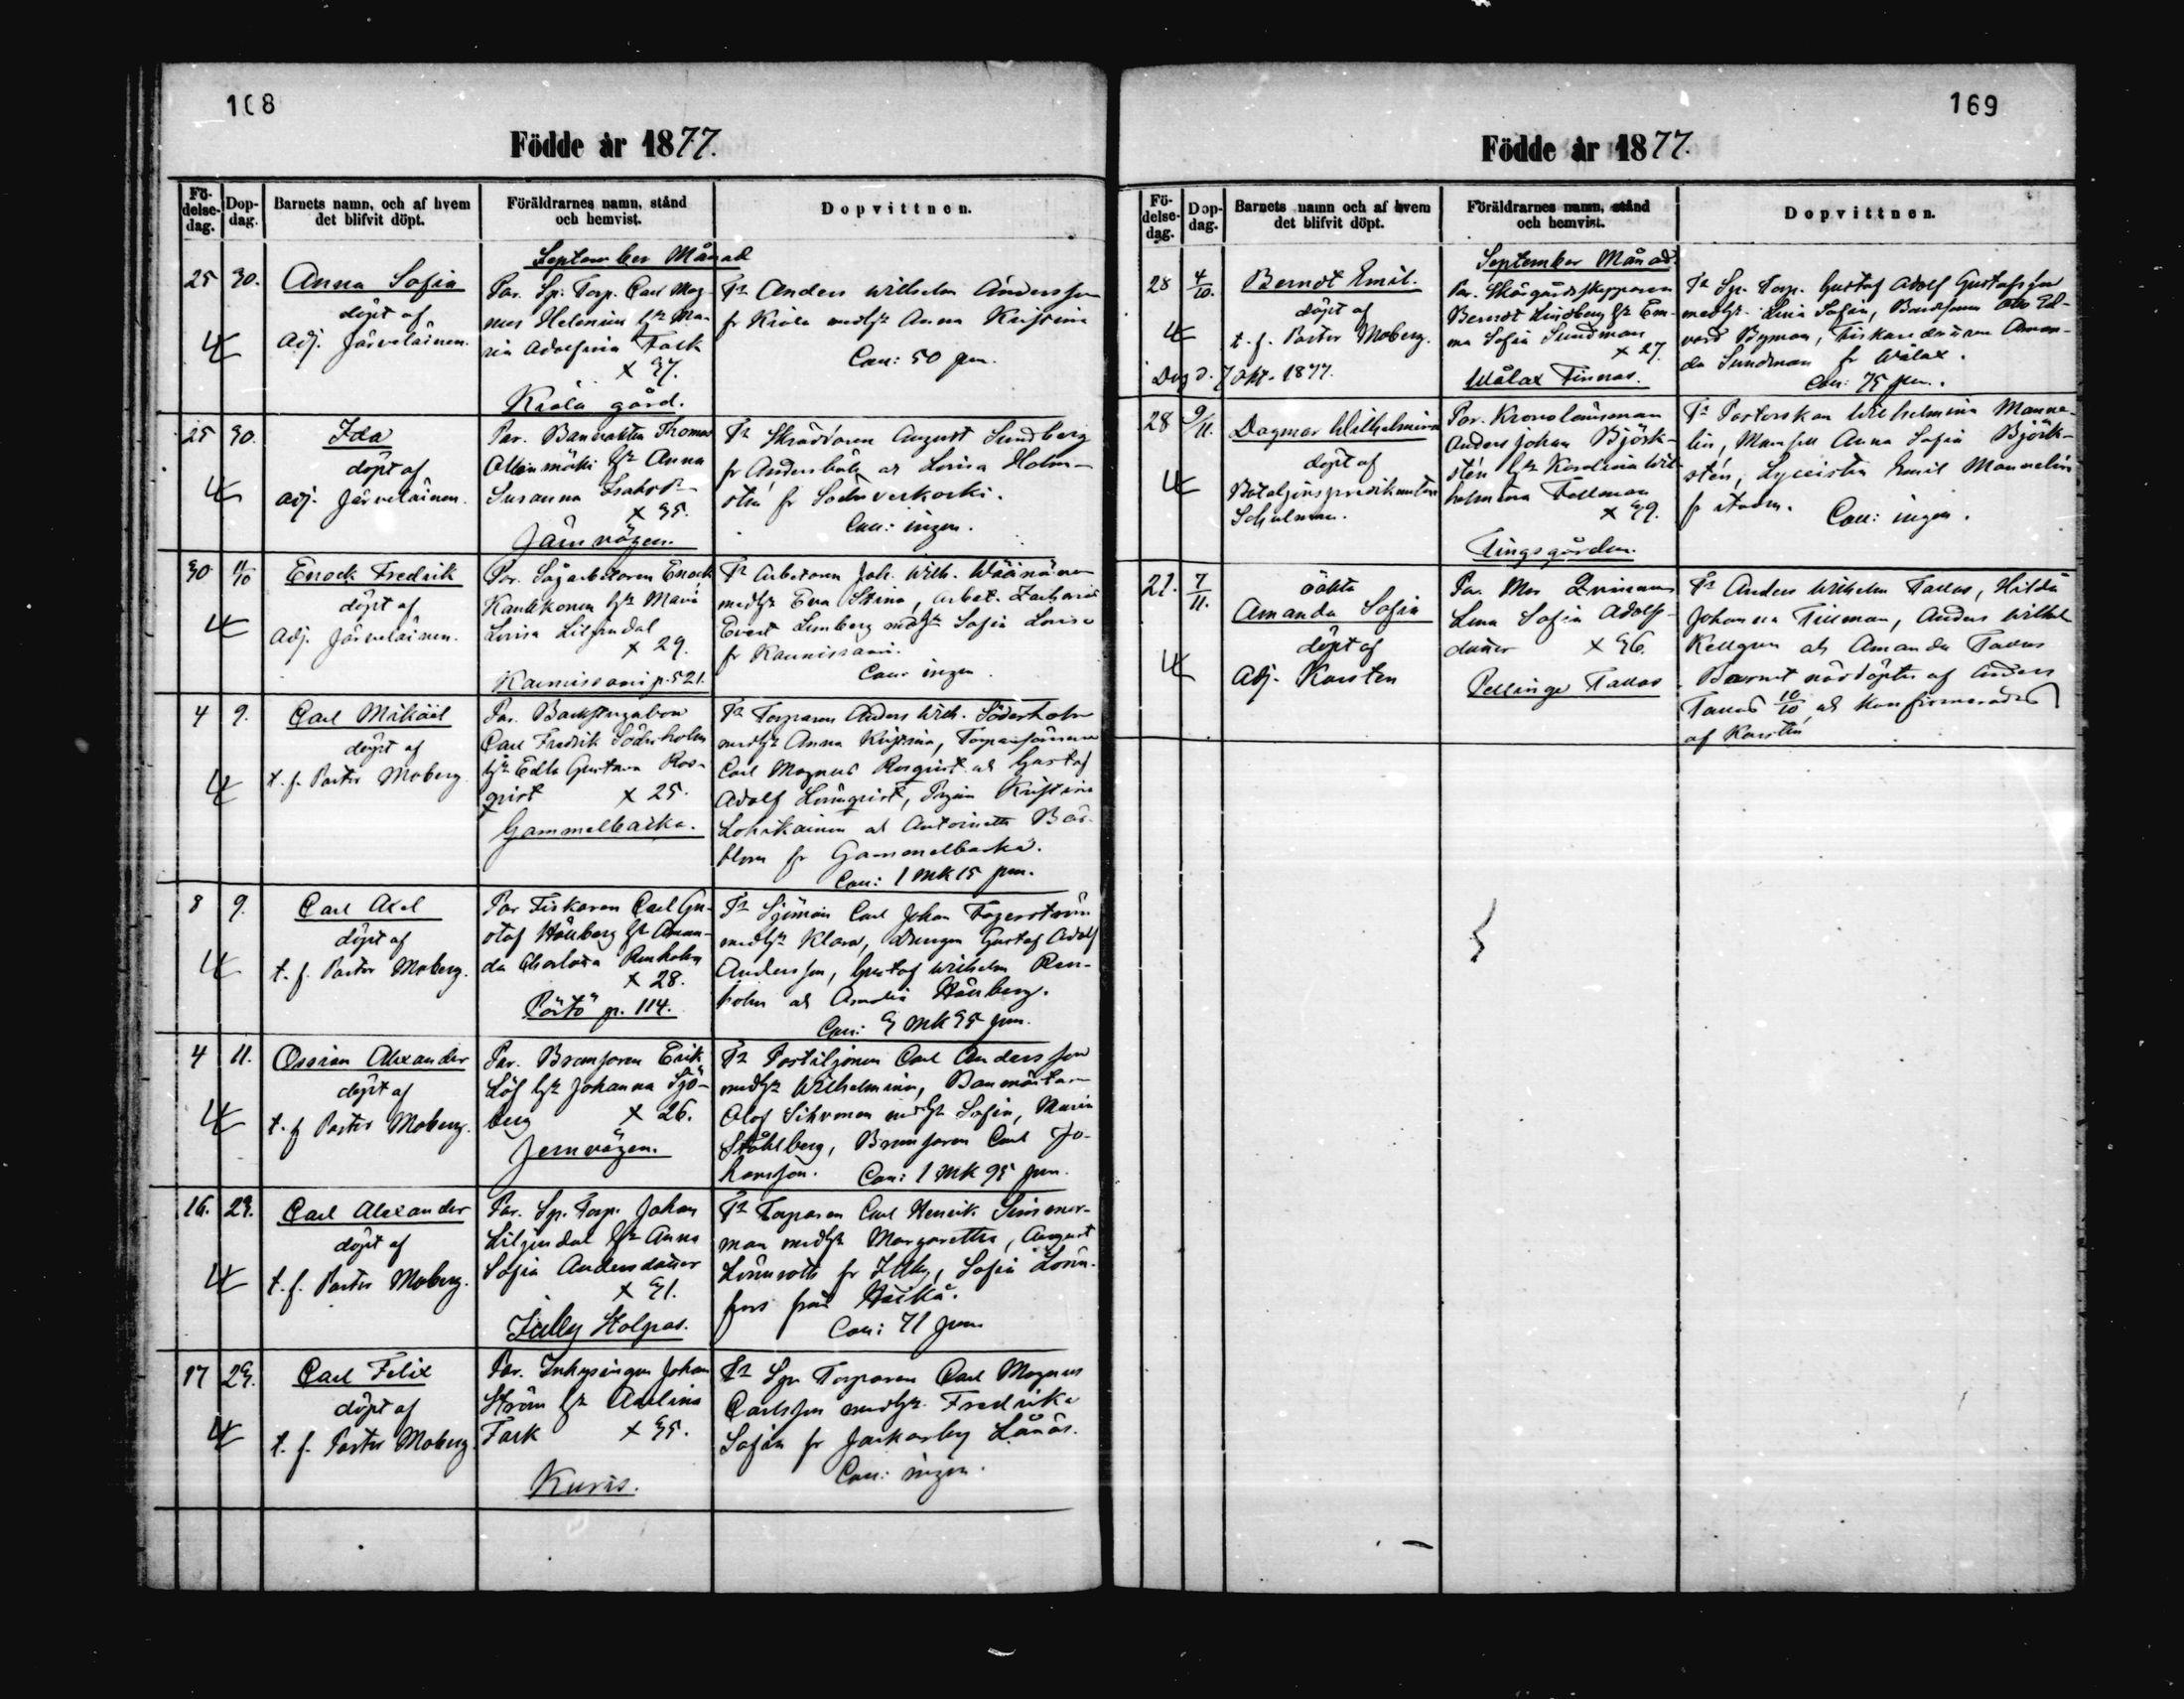 168
Födde år 1877.
Fö-delse-dag.
Dop-dag.
Barnets namn, och af hvem det blifvit döpt.
Föräldrarnes namn, stånd och hemvist.
Dopvittnen.
September Månad
25 30. Anna Sofia
döpt af
Adj. Järveläinen.
Par. Sp. Torp. Carl Mag-
nus Helenius hr Ma-
ria Adolfina Falk
x 37.
Kiala gård.
Fr Anders Wilhelm Andersson
fr Kiala medhr Anna Kristina
Coll: 50 pen.
25 30. Ida
döpt af
adj. Järveläinen.
Par. Banvakten Thomas
hr Anna
Susanna
x 35.
Järnvägen.
Fr Skräddaren August Sundberg
fr Andersböle at Lovisa Holm-
stén fr
Coll: ingen.
30 11/10 Enock Fredrik
döpt af
Adj. Järveläinen.
Par. Sågarbetaren Enock
hr Maria
Lovisa Liljendal
x 29.
p. 521.
Fr Arbetaren Joh. Wilh. Wäänänen
medhr Eva Stina, arbet. Zacharias
Evert Lemberg medhr Sofia Lovisa
fr
Coll: ingen
4 9. Carl Mikäel
döpt af
t. f. Pastor Moberg
Par. Backstugukarlen
Carl Fredrik Söderholm
hr Edla Gustava Ros-
qvist x 25.
Gammelbacka.
Fr Torparen Anders Wilh. Söderholm
medhr Anna Kristina,
Carl Magnus Rosqvist at Gustaf
Adolf Lönnqvist, Pigan Kristina
at
fr Gammelbacka.
Coll: 1 mk 15 pen.
8 9. Carl Axel
döpt af
t. f. Pastor Moberg.
Par Fiskaren Carl Gu-
staf Hällberg hr Aman-
da Charlotta Renholm
x 28.
Pörtö p. 114.
Fr Sjöman Carl Johan Fagerström
medhr Klara, drengen Gustaf Adolf
Andersson, Gustaf Wilhelm Ren-
holm at Amalia Hällberg.
Coll: 3 mk 35 pen.
4 11. Ossian Alexander
döpt af
t. f. Pastor Moberg.
Par. Bromsaren Erik
Löf hr Johanna Sjö-
berg x 26.
Jernvägen.
Fr Postiljonen Carl Andersson
medhr Wilhelmina, Banmästaren
Olof medhr Sofia, Maria
Ståhlberg, Bromsaren Carl Jo-
hansson. Coll: 1 mk 95 pen.
16. 23. Carl Alexander
döpt af
t. f. Pastor Moberg.
Par. Sp. Torp. Johan
Liljendal hr Anna
Sofia Andersdotter
x 31.
Fr Torparen Carl Henrik Simmer-
man medhr Margaretha, August
Lönnroth fr Sofia
från Haikå.
Coll: 71 pen
17 23. Carl Felix
döpt af
t. f. Pastor Moberg.
Par. Inhysingen Johan
Ström hr
x 35.
Kuris.
Fr Sp Torparen Carl Magnus
Carlsson medhr. Fredrika
Sofia fr Jackarby
Coll: ingen.
169
Födde år 1877.
Fö-delse-dag.
Dop-dag.
Barnets namn och af hvem det blifvit döpt.
Föräldrarnes namn, stånd och hemvist.
Dopvittnen.
September Månad.
28 4/10. Berndt Emil.
döpt af
t. f. Pastor Moberg.
Död d. 7 Okt. 1877.
Par. Skärgårdsskepparen
Berndt Lindberg hr Em-
ma Sofia Sundman
x 27.
Wålax Finnas.
Fr Sp. Torp. Gustaf Adolf Gustafsson
medhr. Lina Sofia, Bondsonen Otto Ed-
vard Byman, Fiskaredottren Aman-
da Sundman fr Wålax.
Coll: 75 pen.
28 9/11. Dagmar Wilhelmina
döpt af
Bataljonspredikanten
Schulman.
Par. Kronolänsman
Anders Johan Björk-
stén hr Karolina Wil-
helmina Fellman
x 39.
Tingsgården.
Fr Pastorskan Wilhelmina Manne-
lin, Mamsell Anna Sofia Björk-
stén, Lyceisten Emil Mannelin
fr staden. Coll: ingen.
21. 7/11. oäkta
Amanda Sofia
döpt af
Adj. Karsten
Par. Mor Qvinnan
Lena Sofia Adolfs-
dotter x 36.
Pellinge Tallas
Fr Anders Wilhelm Tallas, Hilda
Johanna Tillman, Anders Wilhel
Kellgren at Amanda Tallas
Barnet nöddöptes af Anders
Tallas 10/10, at konfirmerades
af Karsten